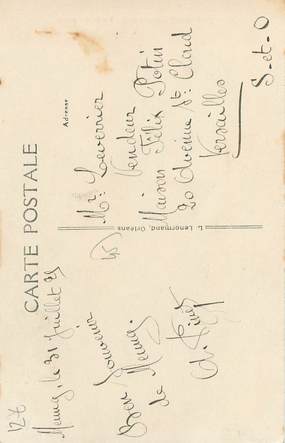 CARTE POSTALE
Adresse
127
Meung, le 31 juillet 25
Bon Souvenir
de Meung.
45
L. Lenormand, Orléans
Mr. Leverrier
Vendeur
Maison Félix Potin
20 Avenue St Cloud
Versailles
S-et-O